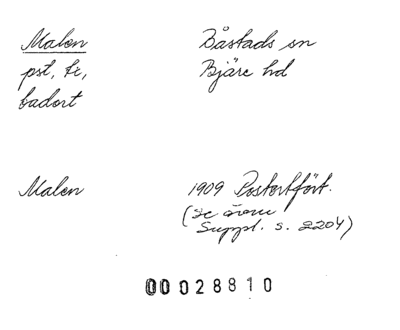 Malen Båstads sn
pst, fr, Bjäre hd
badort
Malen 1909 Postortfört.
(se även
Suppl. s. 2204)
00028810